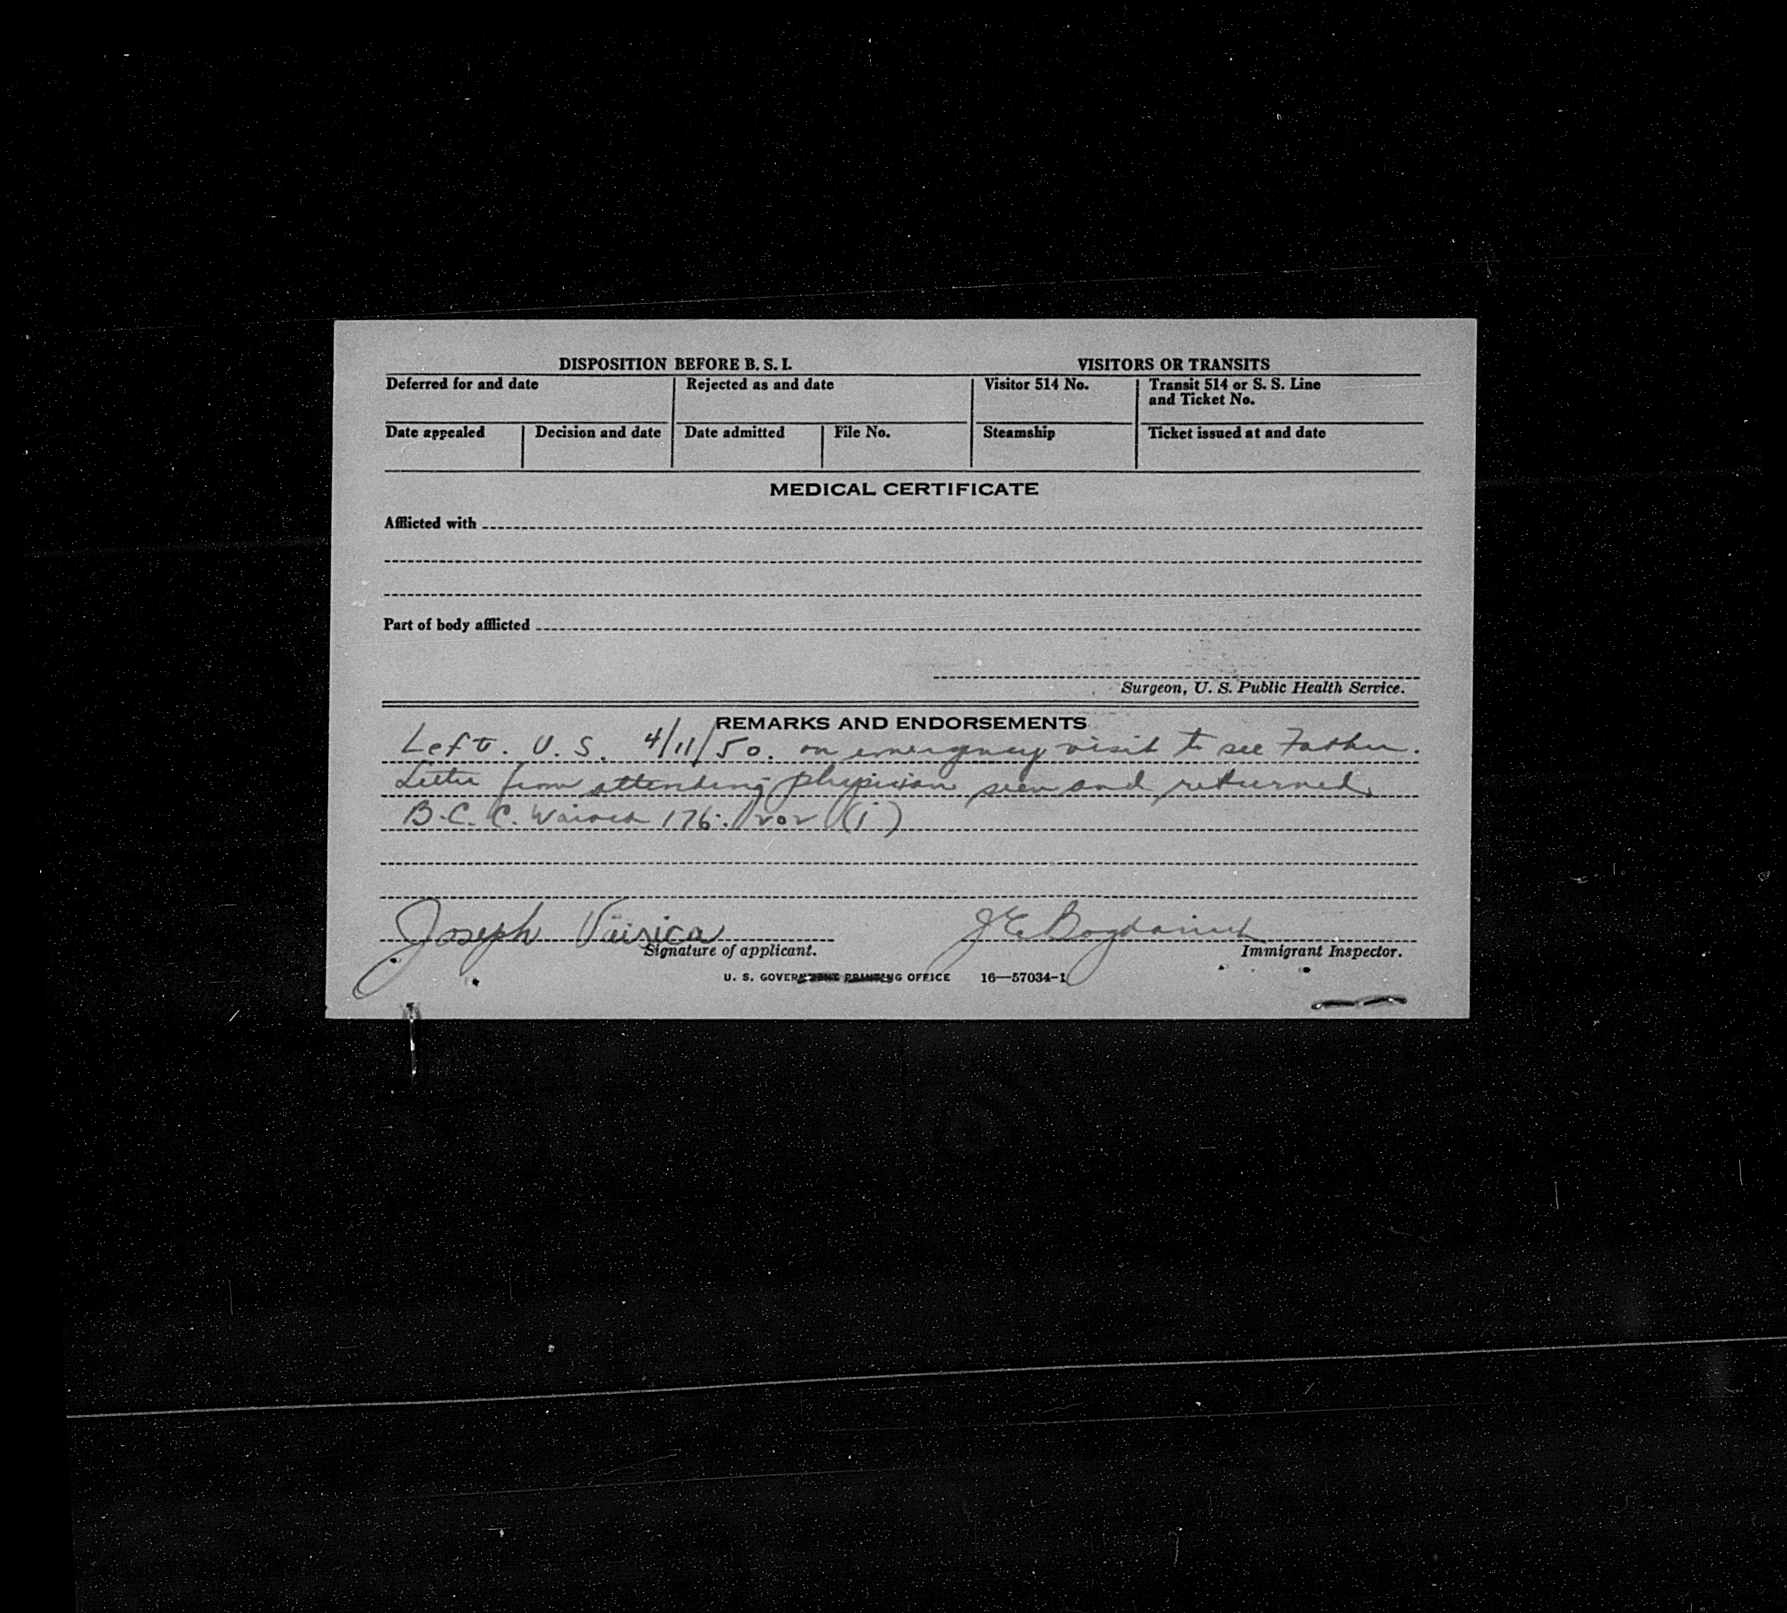 DISPOSITION BEFORE B. S. I. VISITORS OR TRANSITS
Deferred for and date Rejected as and date Visitor 514 No. Transit 514 or S. S. Line and Ticket No.
Date appealed Decision and date Date admitted File No. Steamship Ticket issued at and date
MEDICAL CERTIFICATE
Afflicted with
Part of body afflicted
Surgeon, U. S. Public Health Service.
REMARKS AND ENDORSEMENTS
Left. U. S. 4/11/50. on emergency visit to see Father.
Letter from attending physician seen and returned.
B.C.C. 176. (i)
Joseph
Signature of applicant.
Immigrant Inspector.
U. S. GOVERNMENT PRINTING OFFICE 16—57034-1